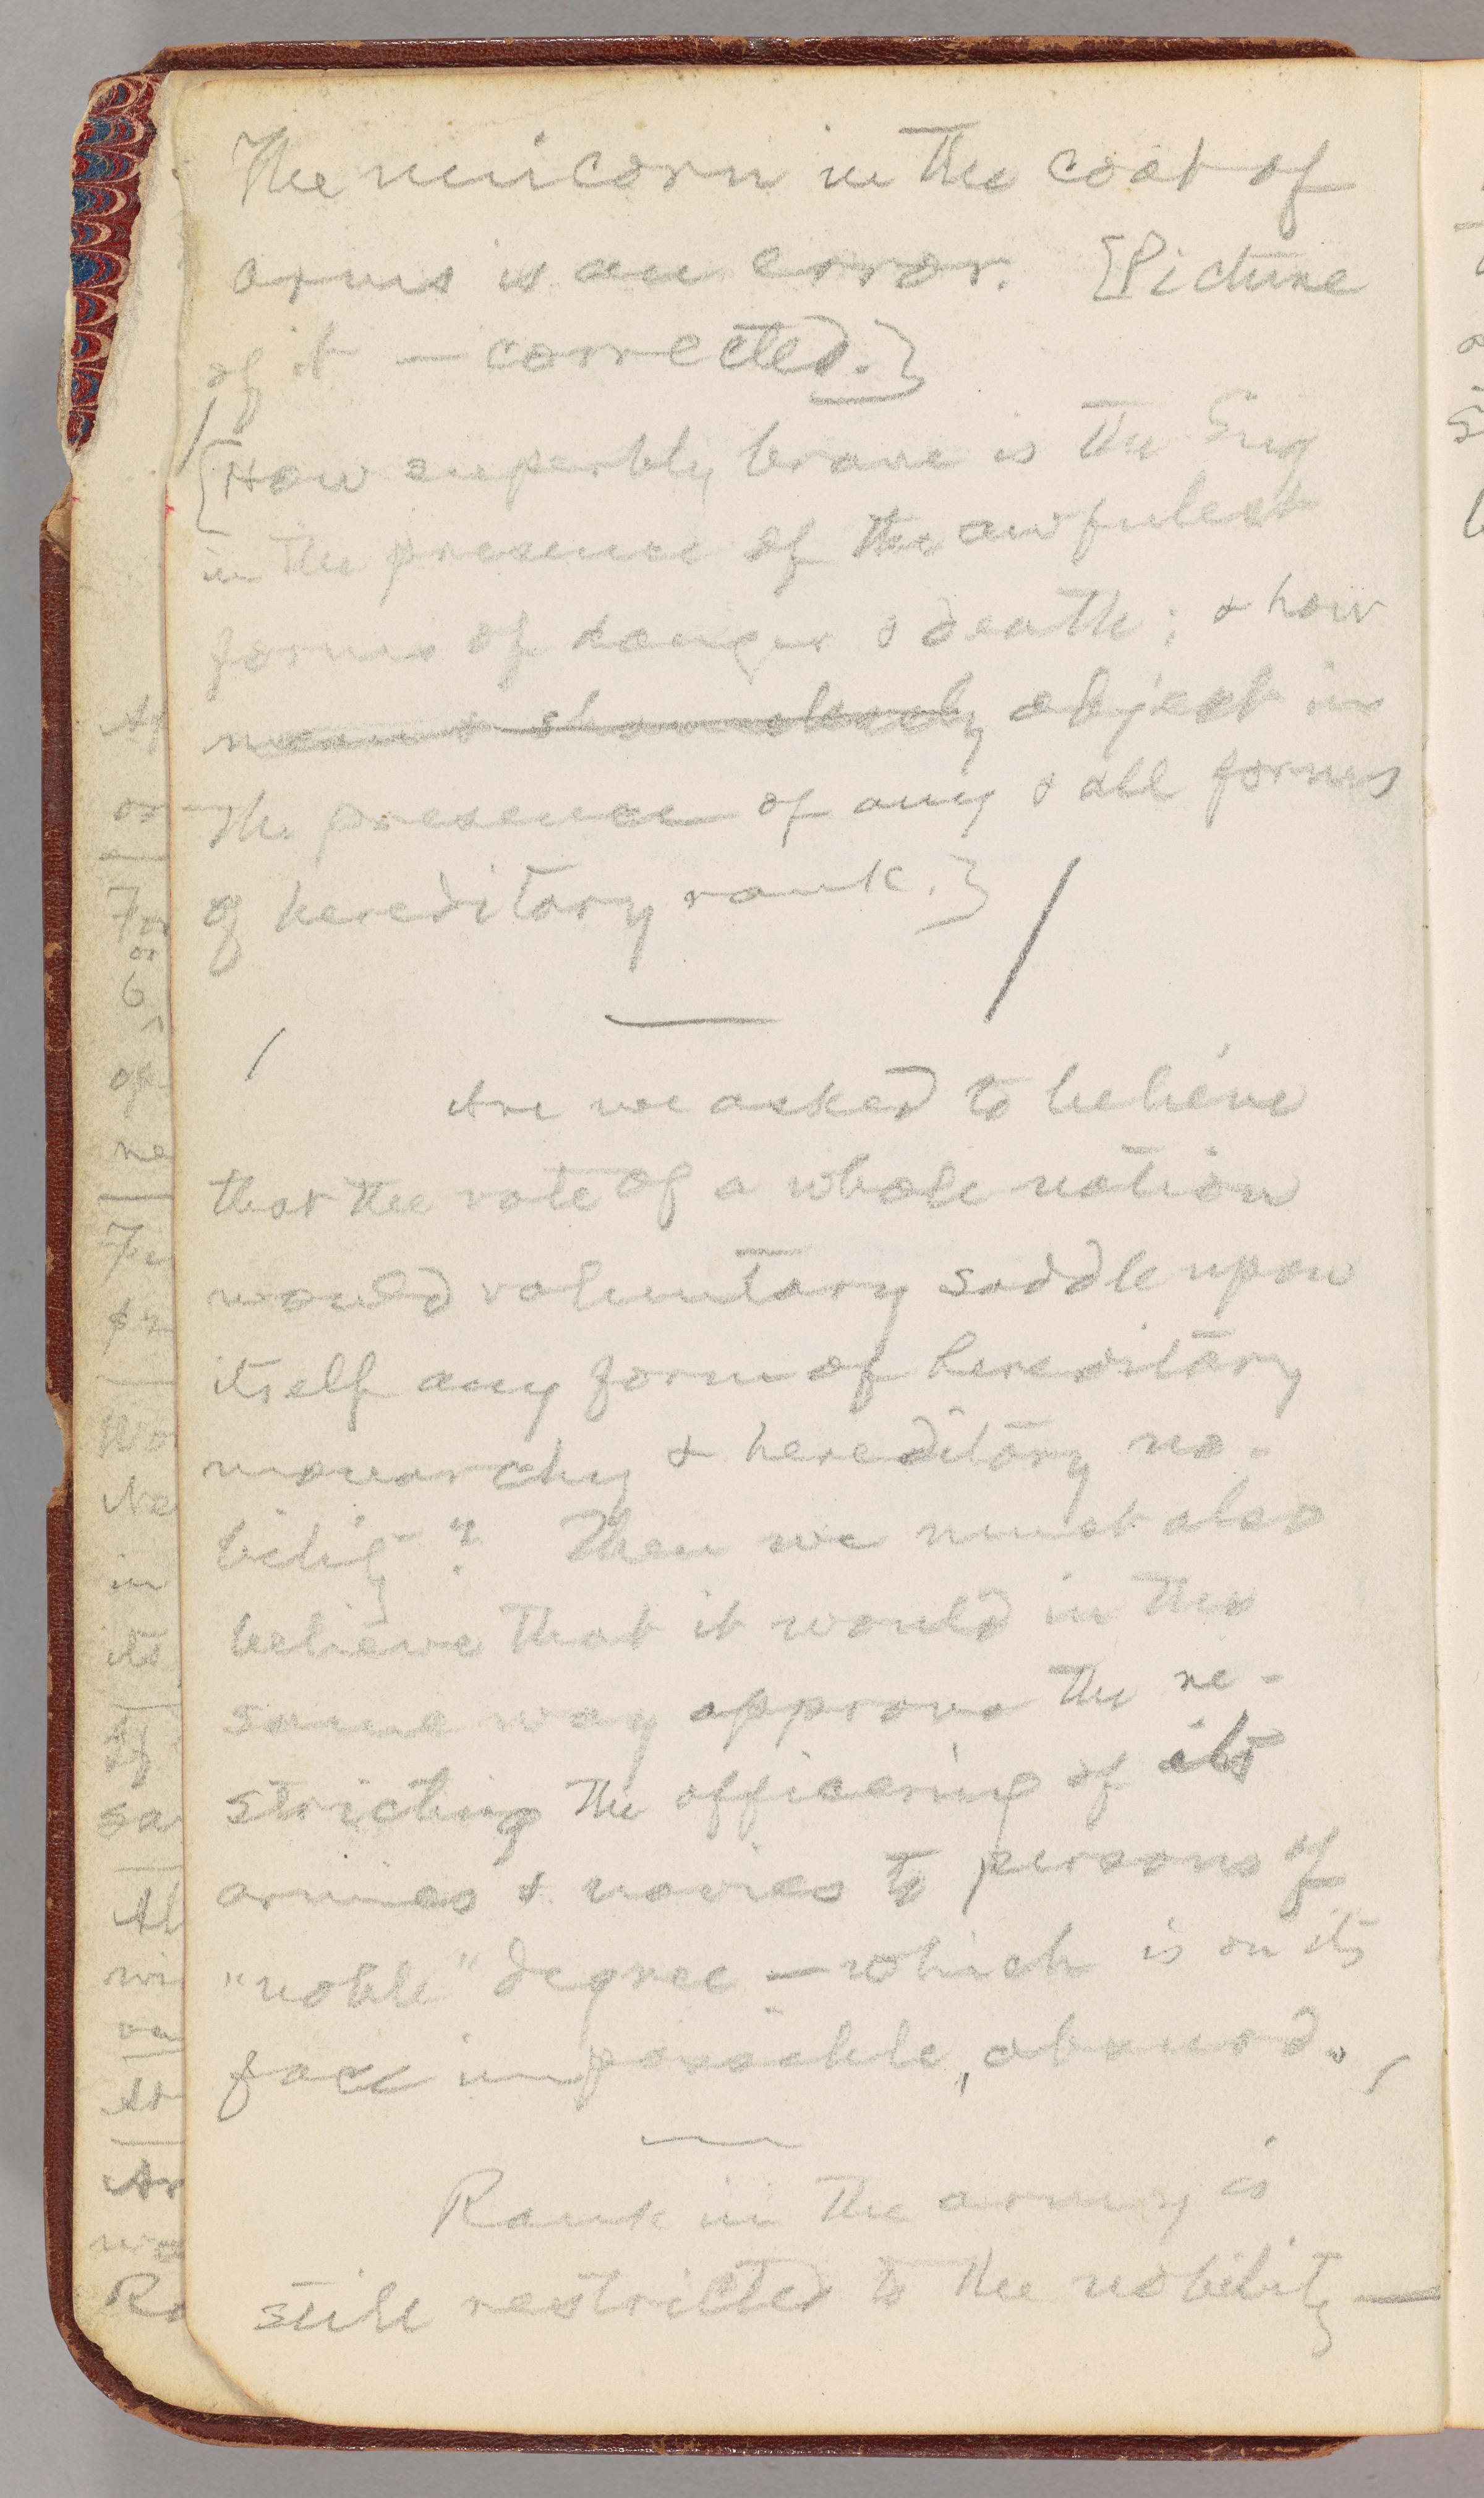 The unicorn in the coat of
arms is an error. [Picture
of it — corrected.}
[How superbly brave is the Eng
in the presence of the awfulest
forms of danger & death; & how
mean & shamelessly abject in
the presence of any & all forms
of hereditary rank.}
Are we asked to believe
that the vote of a whole nation
would voluntary saddle upon
itself any form of hereditary
monarchy & hereditary no-
bility? Then we must also
believe that it would in the
same way approve the re-
stricting the officering of its
armies & navies to persons of
"noble" degree — which is on its
face impossible, absurd.
Rank in the army is
still restricted to the nobility —